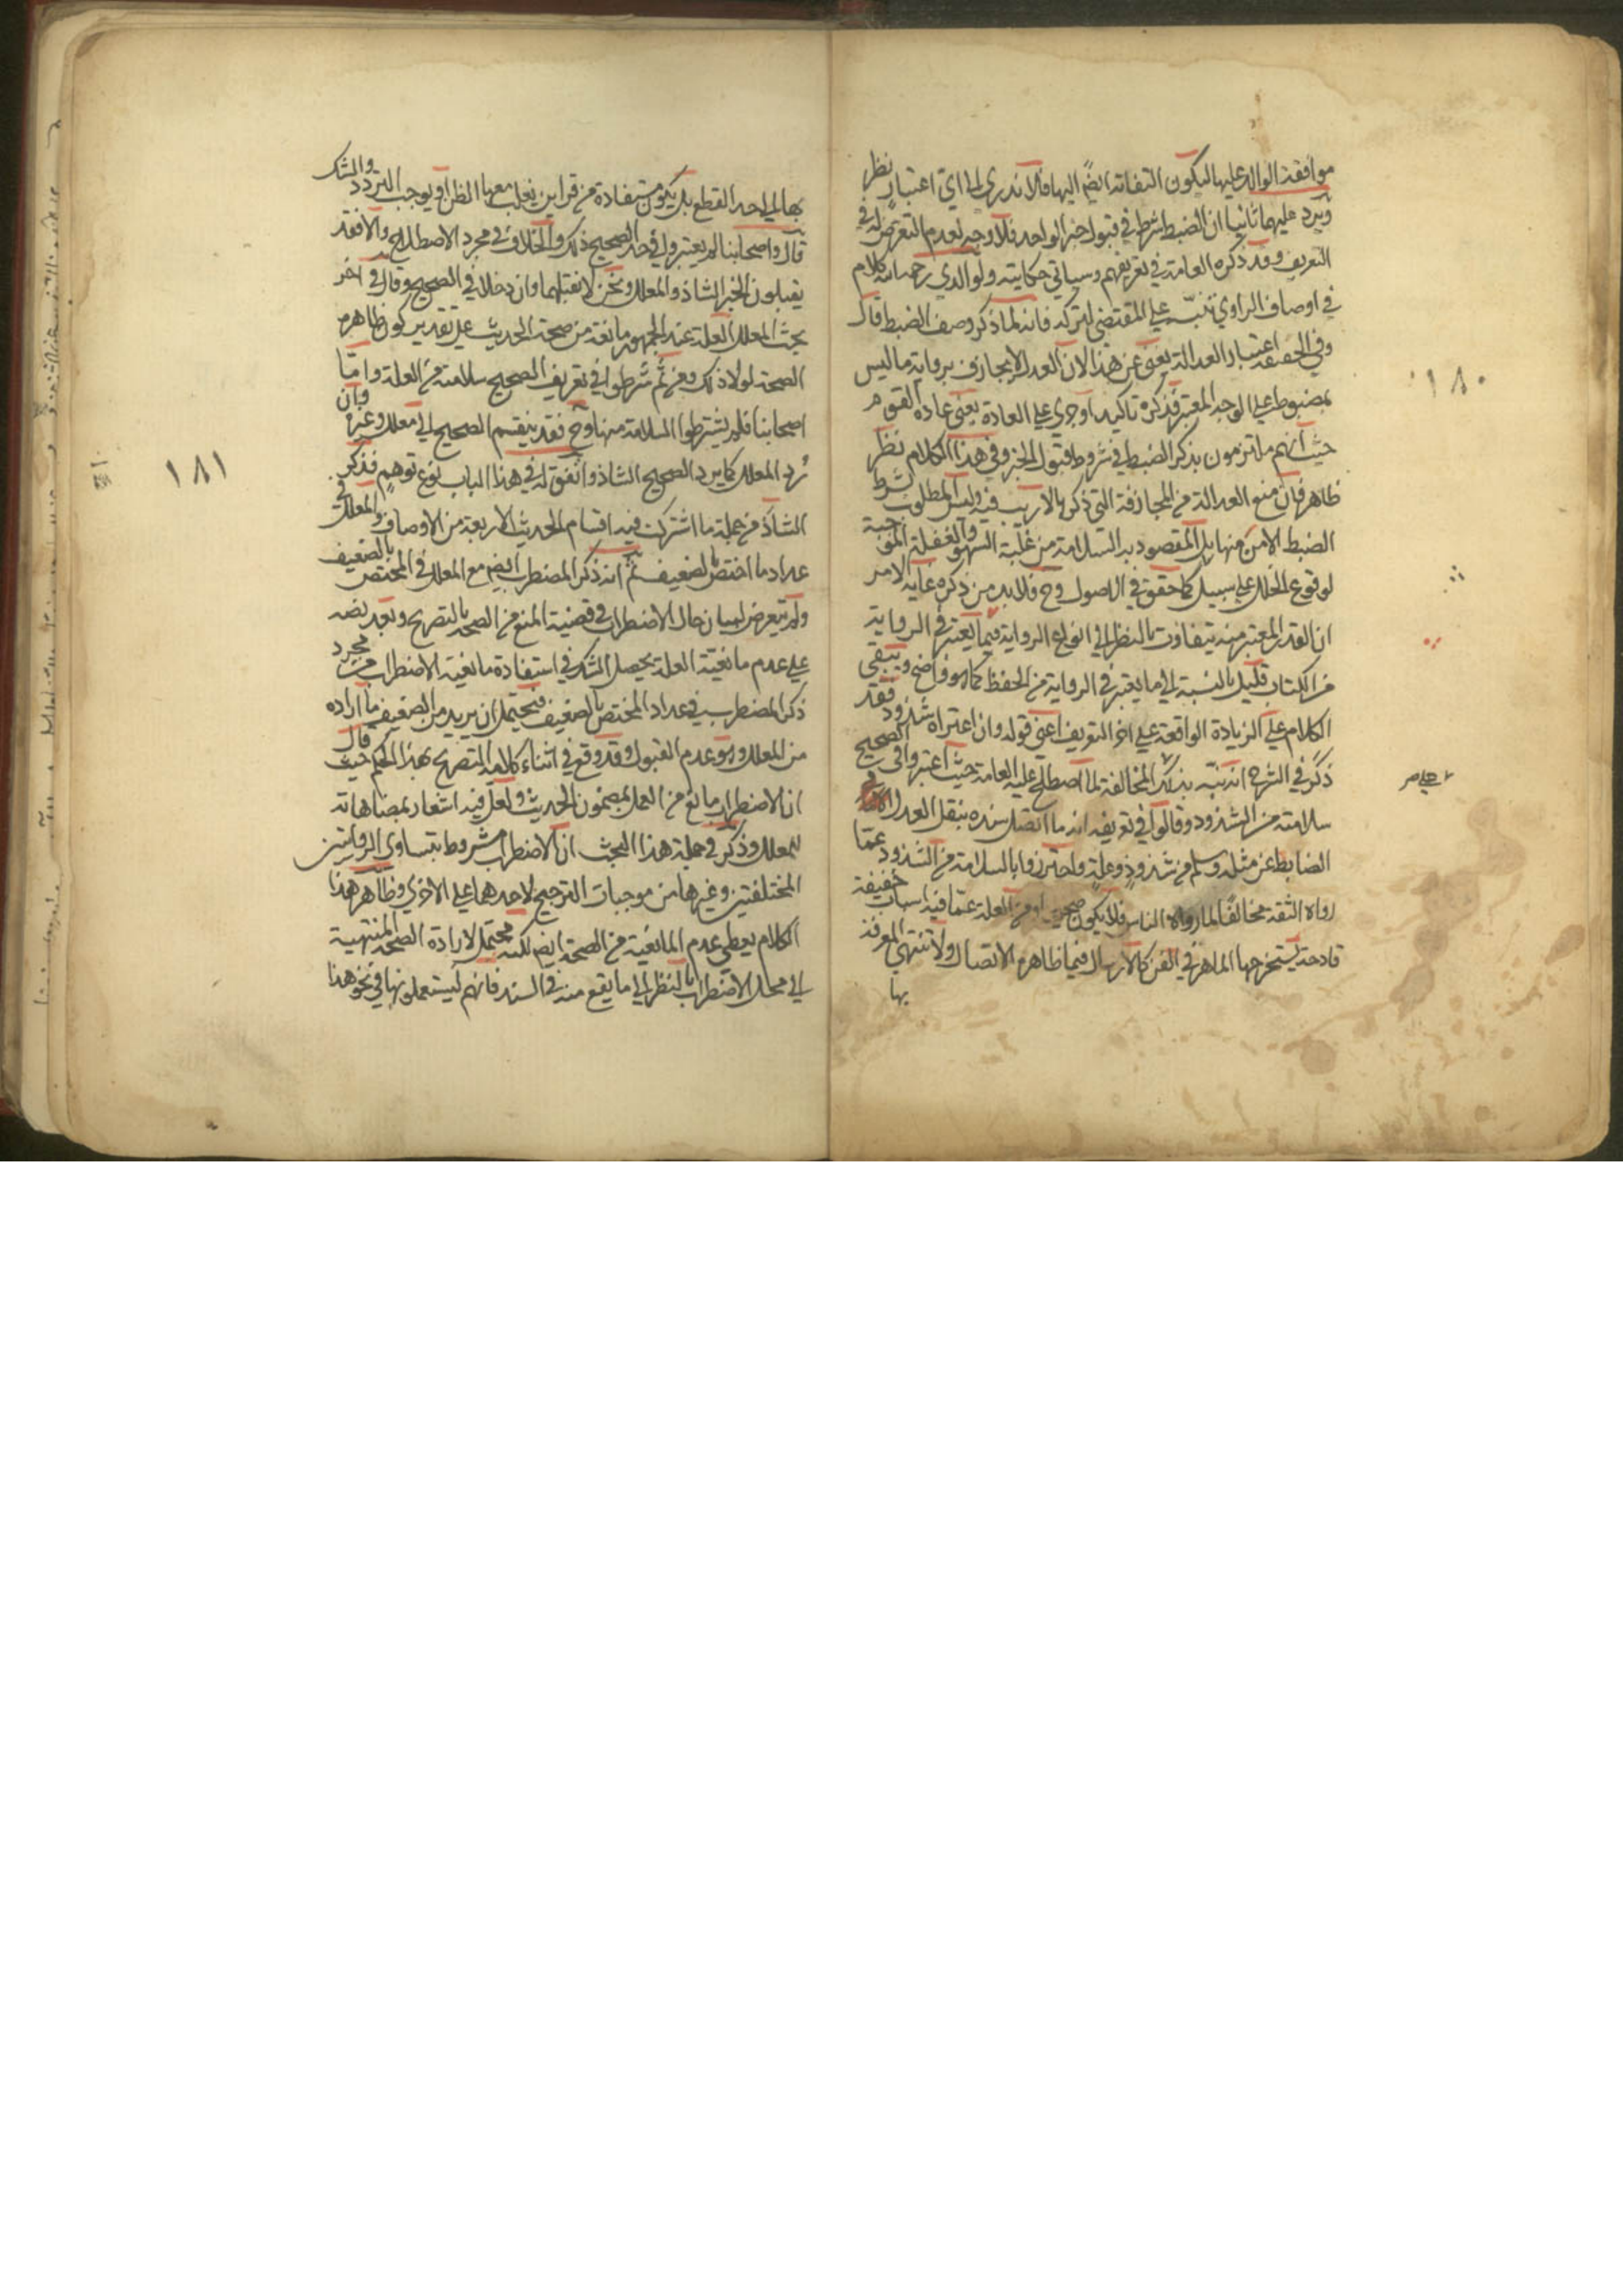 موافقة الوالد عليها ليكون التفاته ايضً اليها فلا ندرى الى اي اعتبار نظر
ويرد عليهما ثانيا ان الضبط شرط في قبول خبر الواحد فلا وجه لعدم التعرض له في
التعريف وقد ذكره العامة في تعريفهم وسياتي حكايته ولوالدي رحمه الله كلام
في اوصاف الراوي نبّه على المقتضى لتركه فانه لما ذكر وصف الضبط قال
وفي الحقيقة اعتبار العدالة يغني عن هذا لان العدل لا يجازف برواية ما ليس
بمضبوط على الوجه المعتبر فذكره تاكيد او جرى على العادة يعني عادة القوم
حيث انهم ملتزمون بذكر الضبط في شروط قبول الخبر وفي هذا الكلام نظر
ظاهر فان منع العدالة من المجازفة التي ذكرها لا ريب فيه وليس المطلوب بشرط
الضبط الامن منها بل المقصود به السلامة من غلبة السهو والغفلة الموجبة
لوقوع الخلل على سبيل كما حقق في الاصول وح فلا بد من ذكره غاية الامر
ان القدر المعتبر منه يتفاوت بالنظر الى انواع الرواية فما يعتبر في الرواية
من الكتاب قليل بالنسبة الى ما يعتبر في الرواية من الحفظ كما هو واضح ويبقى
الكلام على الزيادة الواقعة على اخر التعريف اعني قوله وان اعتراه شذوذ فقد
ذكر في الشرح انه نبّه بذلك المخالفة لما اصطلح عليه العامة حيث اعتبروا في الصحيح
سلامته من الشذوذ وقالوا في تعريفه انه ما اتصل سنده بنقل العدل
الضابط عن مثله وسلم من شذوذٍ وعلةٍ واحترزوا بالسلامة من الشذوذ عمّا
رواه الثقة مخالفا لما رواه الناس فلا يكون صحيحا ومن العلة عمّا فيه اسباب خفيفة
قادحة يستخرجها الماهر في الفن كالارسال فيما ظاهره الاتصال ولا تنتهى المعرفة
بها
١٨٠
بها الى حد القطع بل يكون مستفادة من قراين يغلب معها الظن او يوجب التردد والشك
قال واصحابنا لم يعتبروا في حد الصحيح ذلك والخلاف في مجرد الاصطلاح والا فقد
يقبلون الخبر الشاذ والمعلل ونحن لا نقبلهما وان دخلا في الصحيح وقال في اخر
بحث المعلل العلة عند الجمهور مانعة من صحة الحديث على تقدير كون ظاهره
الصحة لولا ذلك ومن ثَم شرطوا في تعريف الصحيح سلامته من العلة وامّا
اصحابنا فلم يشترطوا السلامة منها وح فقد ينقسم الصحيح الى معلل وغيره وان
رُد المعلل كما يرد الصحيح الشاذ واتفق له في هذا الباب نوع توهم فذكر
الشاذ من جملة ما اشتركت فيه اقسام الحديث الاربعة من الاوصاف والمعلل في
عداد ما اختص بالضعيف ثم انه ذكر المضطرب ايضً مع المعلل في المختص بالضعيف
ولم يتعرض لبيان حال الاضطراب في قضية المنع من الصحة بالتصريح وبعد نصه
على عدم مانعية العلة يحصل الشك في استفادة مانعية الاضطراب من مجرد
ذكر المضطرب في عداد المختص بالضعيف فيحتمل ان يريد من الضعيف ما اراده
من المعلل وهو عدم القبول وقد وقع في اثناء كلامه التصريح بهذا الحكم حيث قال
ان الاضطراب مانع من العمل بمضمون الحديث ولعلّ فيه اشعار بمضاهاته
للمعلل وذكر في جملة هذا البحث ان الاضطراب مشروط بتساوي الروايتين
المختلفتين وغيرها من موجبات الترجيح لاحدهما على الاخرى وظاهر هذا
الكلام يعطي عدم المانعية من الصحة ايضً لكنه محتمل لارادة الصحة المنتهية
الى محل الاضطراب بالنظر الى ما يقع منه في السند فانهم يستعملونها في نحو هذا
١٨١